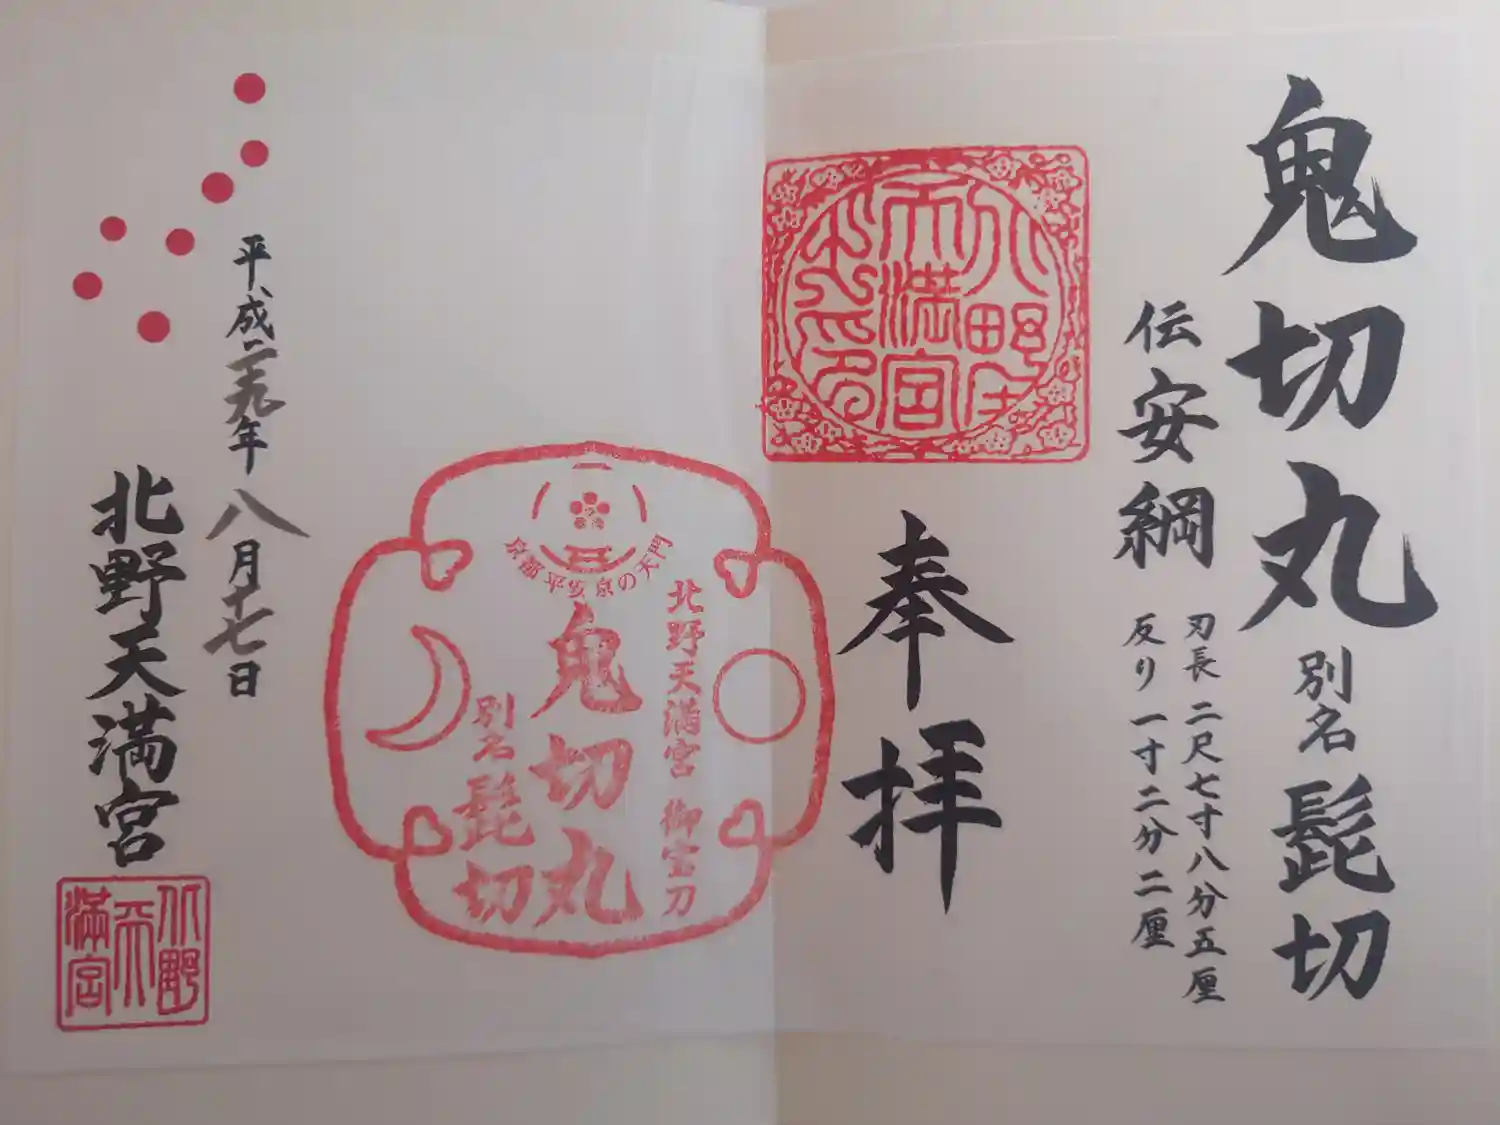 鬼切丸 別名 髭切
伝安綱
刃長 二尺七寸八分五厘
反り 一寸二分二厘
奉拝
北野天満宮
北野天満宮 御宝刀
鬼切丸
別名 髭切
京都平安京の天門
平成二十九年八月十七日
北野天満宮
北野天満宮